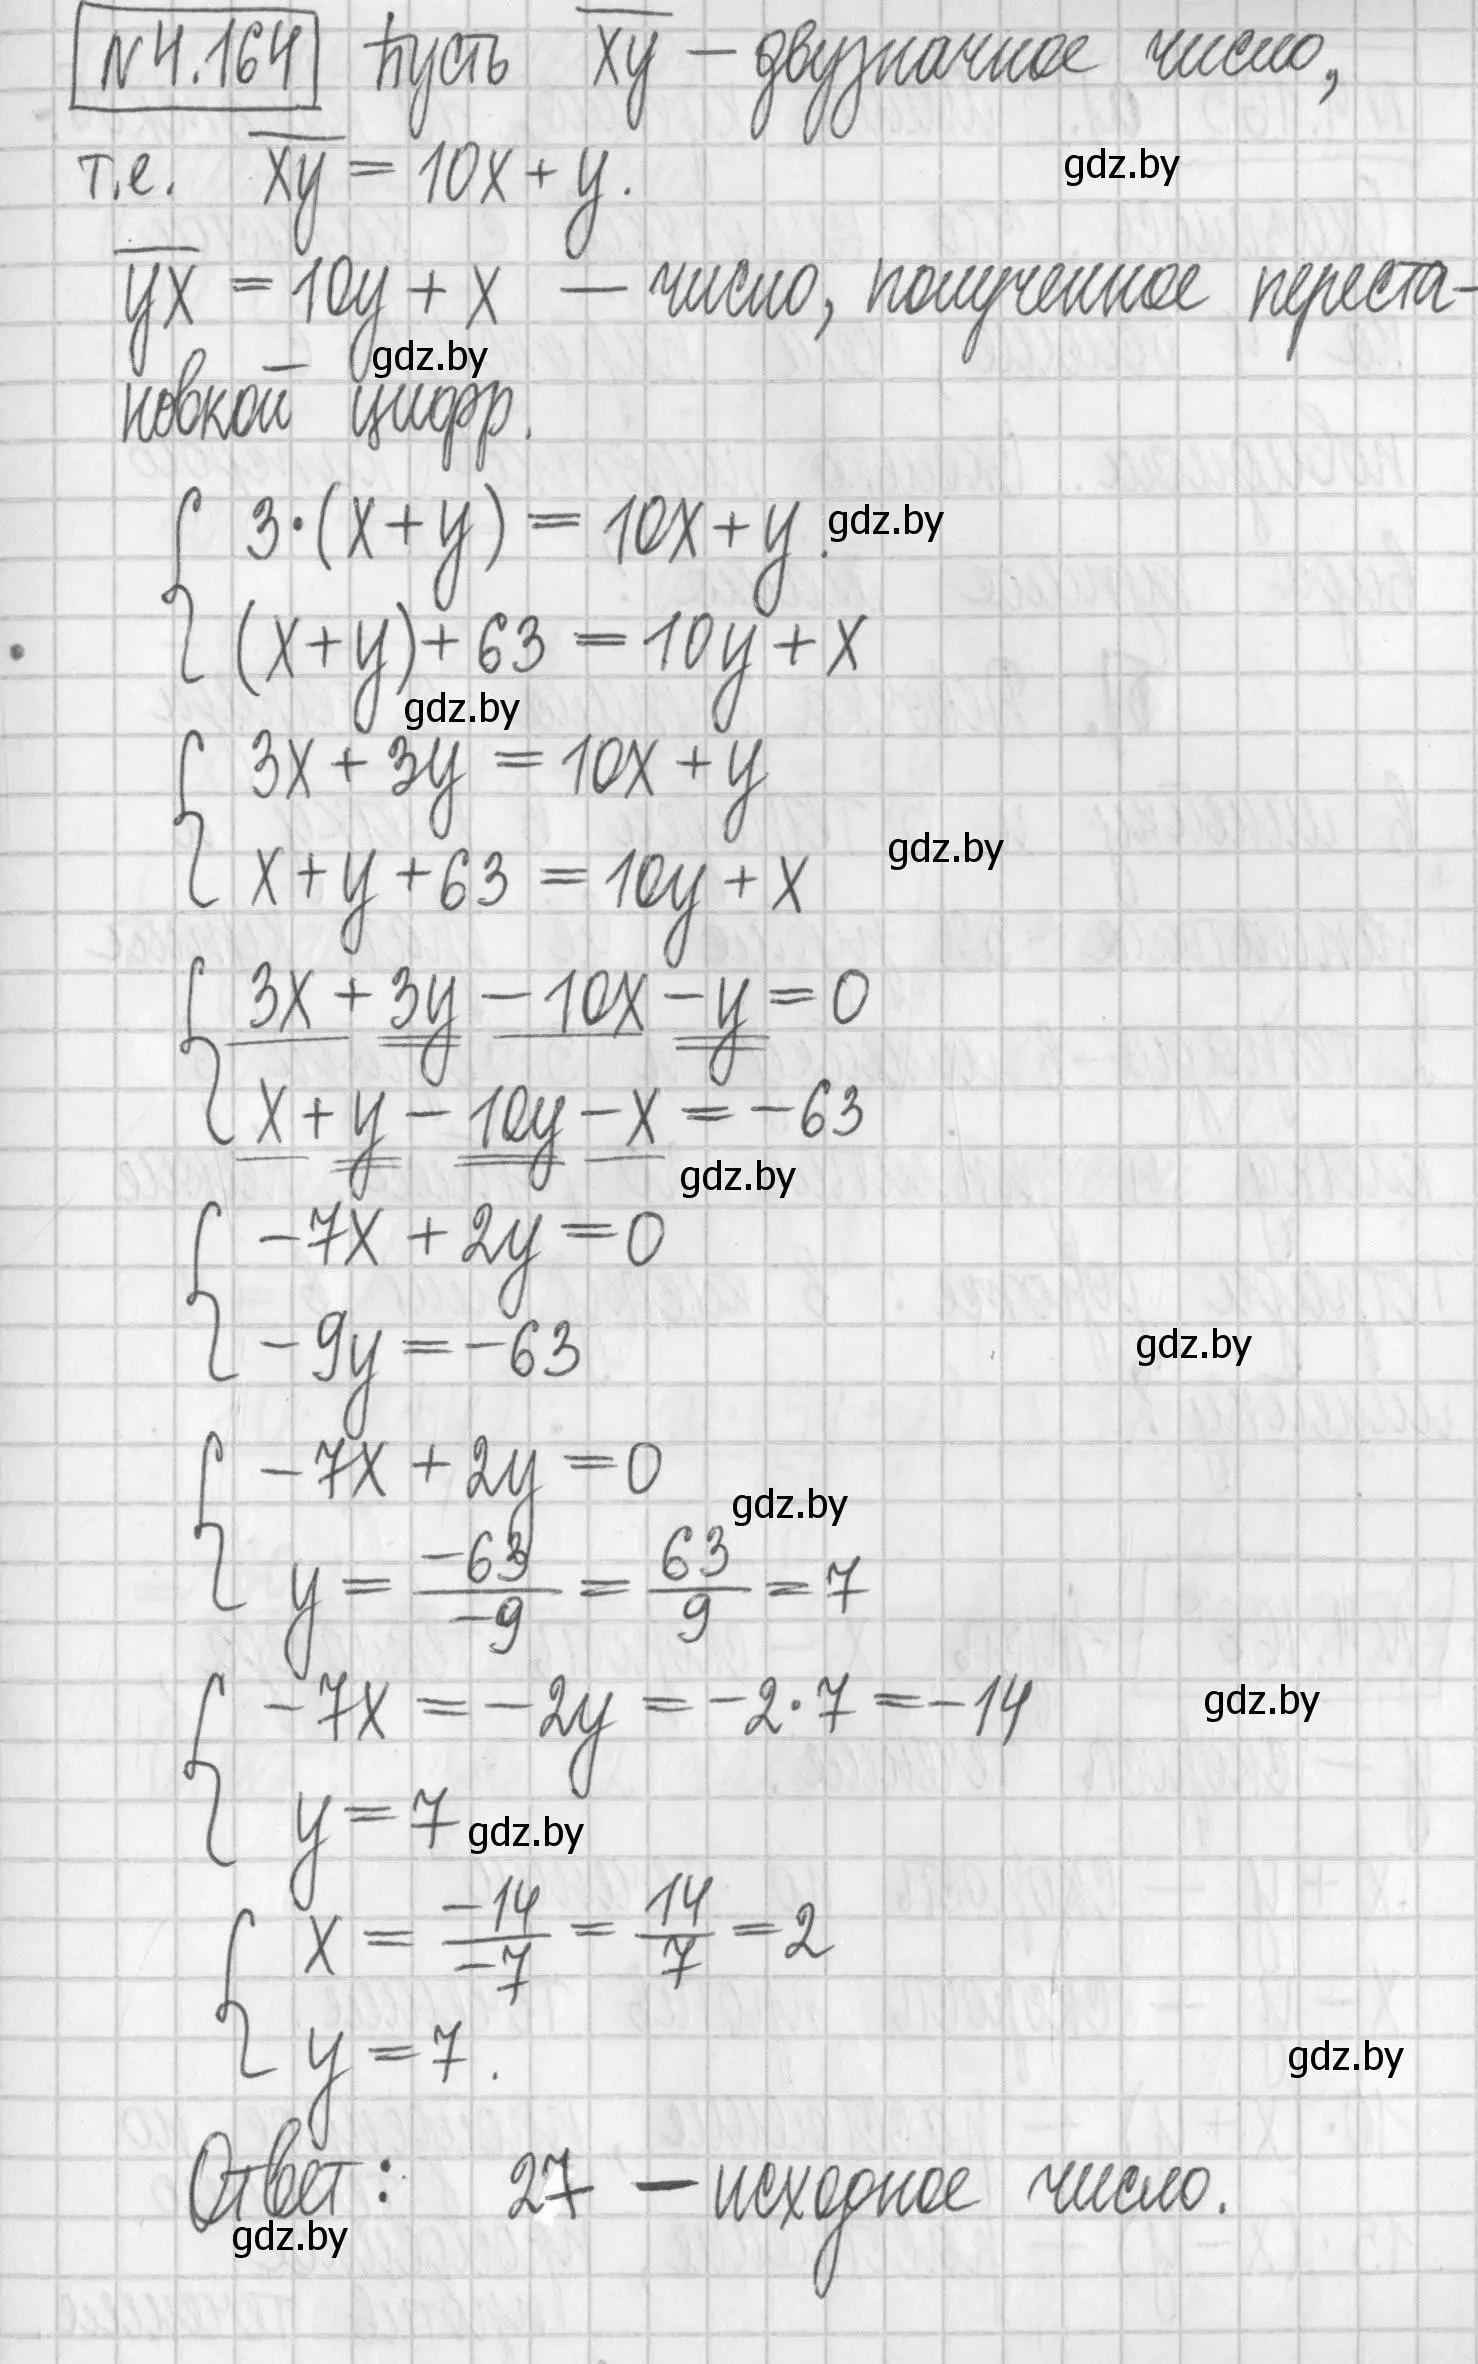 N4.164 Пусть xy – двузначное число,
т.е. xy = 10x + y.
gdz.by
yx = 10y + x — число, полученное переста-
gdz.by
новкой цифр.
3·(x+y) = 10x+y.
gdz.by
(x+y)+63 = 10y+x
gdz.by
3x + 3y = 10x + y
gdz.by
x+y+63 = 10y+x
3x + 3y – 10x – y = 0
x + y – 10y – x = –63
gdz.by
–7x + 2y = 0
–9y = –63
gdz.by
–7x + 2y = 0
gdz.by
y = –63/–9 = 63/9 = 7
–7x = –2y = –2·7 = –14
gdz.by
y = 7
gdz.by
x = –14/–7 = 14/7 = 2
y = 7.
gdz.by
Ответ: 27 – исходное число.
gdz.by